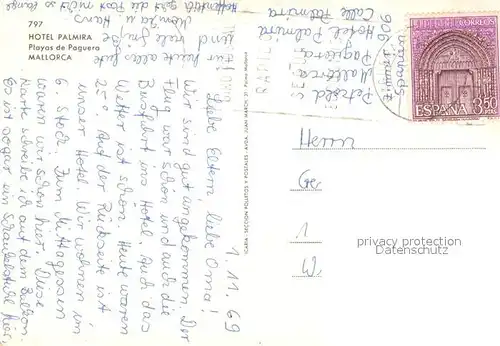 797
HOTEL PALMIRA
Playas de Paguera
MALLORCA
1.11.69
Liebe Eltern, liebe Oma!
Wir sind gut angekommen. Der
Flug war schön und auch die
Busfahrt ins Hotel. Auch das
Wetter ist schön. Heute waren
25°. Auf der Rückseite ist
unser Hotel. Wir wohnen im
6. Stock. Zum Mittagessen
waren wir schon hier. Diese
Karte schreibe ich auf dem Balkon.
Es ist sogar ein Schaukelstuhl hier.
Für heute alles Gute
und viele Grüße
Hans
Hoffentlich
geht die Post nicht so lange
Hotel Palmira
Paguera
Mallorca
Calle Palmira
ICARIA-SECCION FOLLETOS Y POSTALES-AVDA. JUAN MARCH, 21-Palma Mallorca
CORREOS
ESPAÑA
3,50
PTAS
Herrn
1
W
privacy protection
Datenschutz